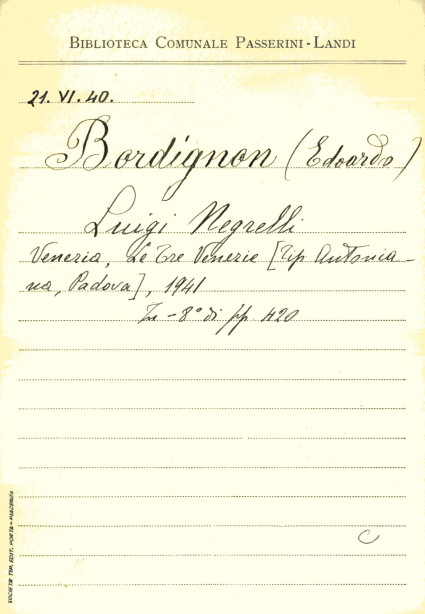 BIBLIOTECA COMUNALE PASSERINI-LANDI
21. VI. 40.
Bordignon (Edoardo)
Luigi Negrelli
Venezia, Le Tre Venezie [Tip Antonia-
na, Padova], 1941
In-8° di pp 420
C
SOCIETÀ TIP. EDIT. PORTA - PIACENZA